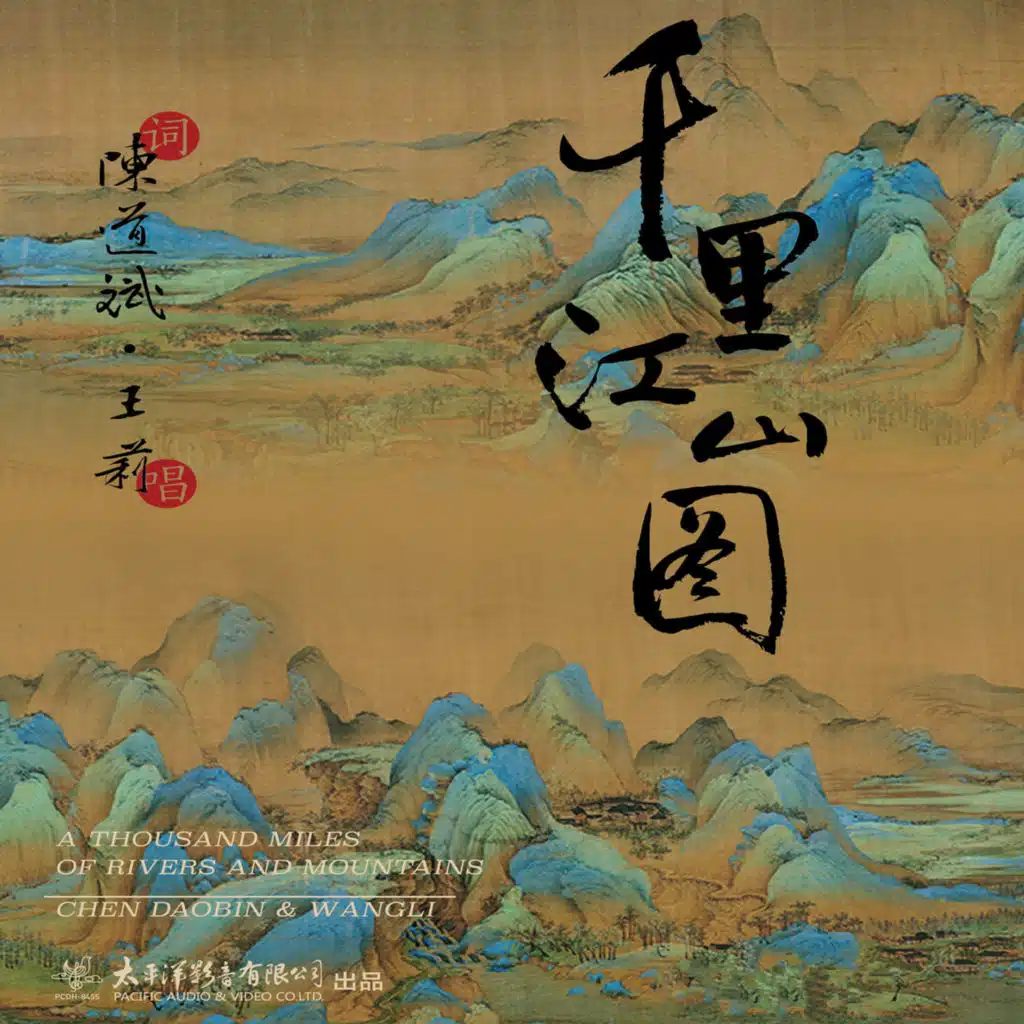 千里江山图
词
陳道斌·王莉
唱
A THOUSAND MILES
OF RIVERS AND MOUNTAINS
CHEN DAOBIN & WANGLI
PCDH-8455
太平洋影音有限公司 出品
PACIFIC AUDIO & VIDEO CO.LTD.